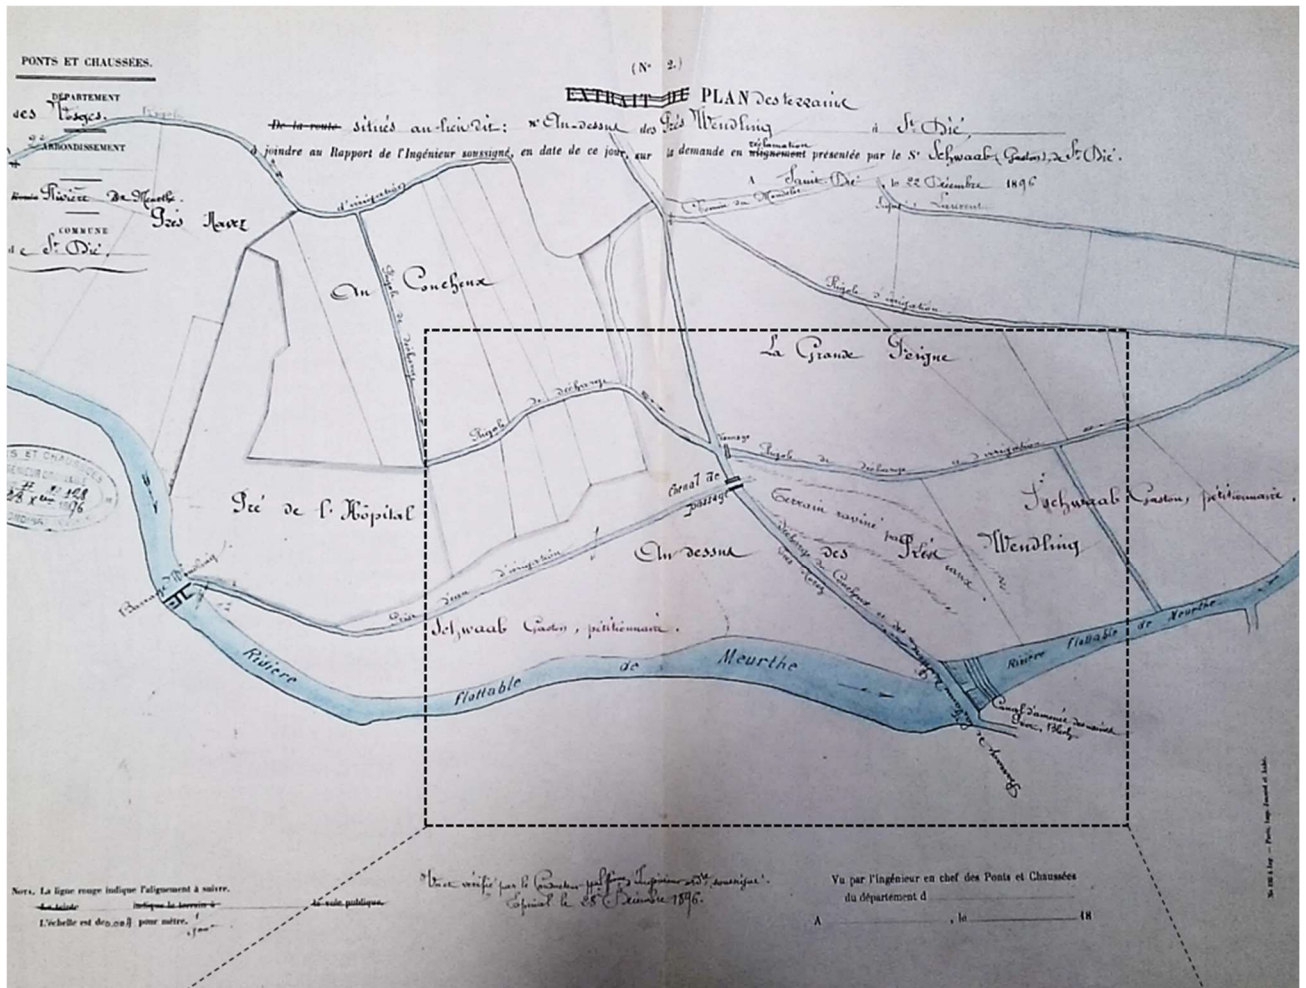 PONTS ET CHAUSSÉES.
DÉPARTEMENT
des Vosges.
ARRONDISSEMENT
Rivière De Meurthe.
COMMUNE
de St Dié.
(No 2.)
EXTRAIT DE PLAN des terrains
De la route situés au lieu dit : "Au-dessus des Prés Wendling à St Dié,
à joindre au Rapport de l'Ingénieur soussigné, en date de ce jour, sur la demande en alignement réclamation présentée par le Sr Schwaab (Gaston), de St Dié.
A Saint Dié le 22 Décembre 1896
Rigole
d'irrigation
Chemin du
Rigole d'irrigation
Au Concheux
Rigole de décharge
La Grande
Rigole de décharge
Vannage
Rigole de décharge et d'irrigation
Schwaab Gaston, pétitionnaire.
Pré de l'Hôpital
Chenal de passage
Terrain raviné par les eaux.
Au dessus des Prés Wendling
Prise d'eau d'irrigation
décharge du Concheux et des
Barrage
Schwaab Gaston, pétitionnaire.
Rivière flottable de Meurthe
Rivière flottable de Meurthe
Canal d'amenée des usines
Barrage de
PONTS ET CHAUSSÉES
1896
NOTA. La ligne rouge indique l'alignement à suivre.
La teinte indique le terrain à la voie publique.
L'échelle est de pour mètre.
Vu et vérifié par le Conducteur Ingénieur soussigné.
Epinal le 28 Décembre 1896.
Vu par l'ingénieur en chef des Ponts et Chaussées
du département d
A , le 18